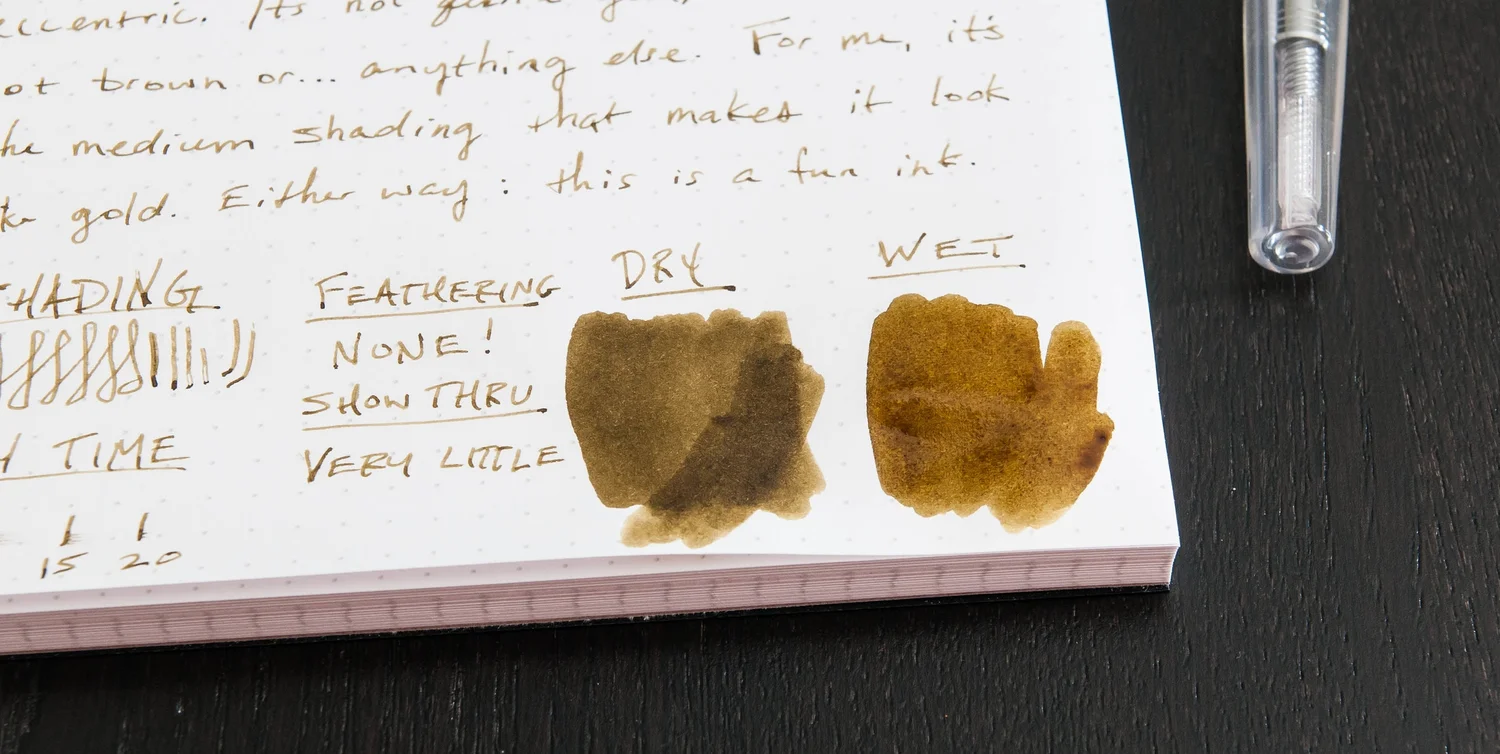 eccentric. It's not
ot brown or... anything else. For me, it's
he medium shading that makes it look
ke gold. Either way: this is a fun ink.
SHADING
FEATHERING
NONE!
SHOW THRU
VERY LITTLE
DRY
WET
H TIME
15 20